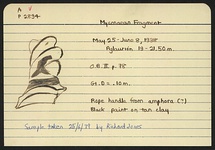 A
P 2534
Mycenaean Fragment
May 25 - June 8, 1938
C.A. III p. 75
Gr. D = .10 m.
Rope handle from amphora (?)
Black paint on tan clay
Sample taken by Richard Jones